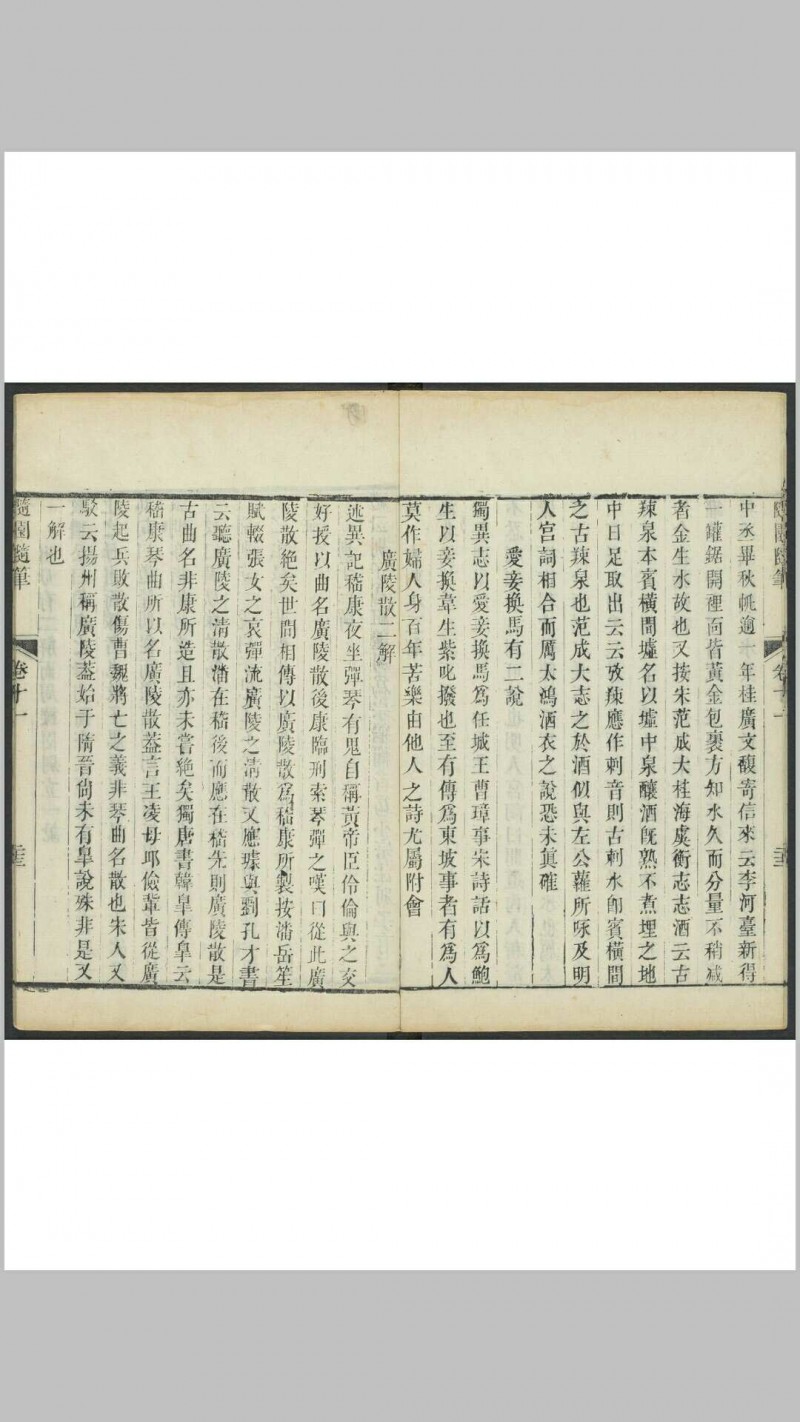 隨園隨筆
卷十一
中丞畢秋帆適一年桂廣文馥寄信來云李河臺新得
一罐鋸開裡面皆黃金包裹方知水久而分量不稍减
者金生水故也又按宋范成大桂海虞衡志志酒云古
辣泉本賓橫間墟名以墟中泉釀酒旣熟不煮埋之地
中日足取出云云攷辣應作剌音則古剌水卽賓橫間
之古辣泉也范成大志之於酒似與左公蘿所咏及明
人宮詞相合而厲太鴻洒衣之說恐未眞確
愛妾換馬有二說
獨異志以愛妾換馬爲任城王曹璋事宋詩話以爲鮑
生以妾換韋生紫叱撥也至有傳爲東坡事者有爲人
莫作婦人身百年苦樂由他人之詩尤屬附會
廣陵散二解
述異記嵇康夜坐彈琴有鬼自稱黃帝臣伶倫與之交
好授以曲名廣陵散後康臨刑索琴彈之嘆曰從此廣
陵散絶矣世間相傳以廣陵散爲嵇康所製按潘岳笙
賦輟張女之哀彈流廣陵之淸散又應璩與劉孔才書
云聽廣陵之淸散潘在嵇後而應在嵇先則廣陵散是
古曲名非康所造且亦未嘗絶矣獨唐書韓臯傳臯云
嵇康琴曲所以名廣陵散蓋言王凌母邱儉輩皆從廣
陵起兵敗散傷曹魏將亡之義非琴曲名散也朱人又
駁云揚州稱廣陵葢始于隋晉尙未有臯說殊非是又
一解也
隨園隨筆
卷十一